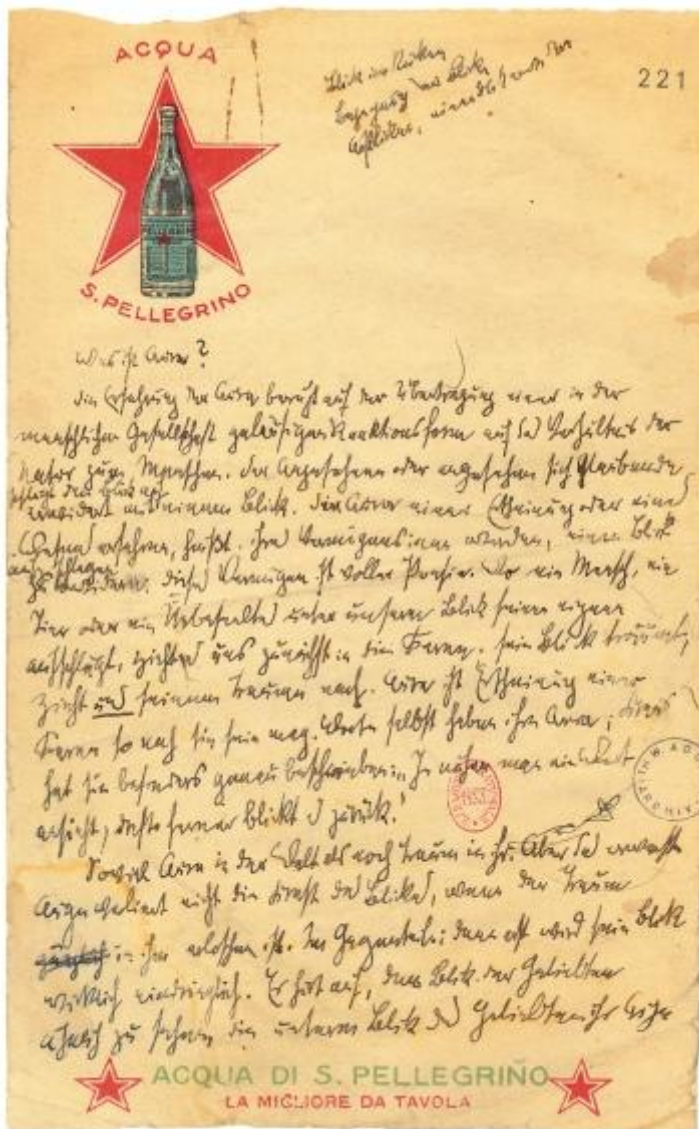 ACQUA
S. PELLEGRINO
221
Blick im Rücken
Begegnung der Blicke
Was ist Aura?
Die Erfahrung der Aura beruht auf der Übertragung einer in der
menschlichen Gesellschaft geläufigen Reaktionsform auf das Verhältnis der
Natur zum Menschen. Der Angesehene oder angesehen sich Glaubende
schlägt den Blick auf
erwidert mit einem Blick. Die Aura einer Erscheinung oder eines
Wesens erfahren, heißt, ihres Vermögens inne werden, einen Blick
aufzuschlagen
zu erwidern. Dieses Vermögen ist voller Poesie. Wo ein Mensch, ein
Tier oder ein Unbeseeltes unter unserm Blick seinen eignen
aufschlägt, zieht es uns zunächst in die Ferne; sein Blick träumt,
zieht uns seinem Traume nach. Aura ist Erscheinung einer
Ferne so nah sie sein mag. Worte selbst haben ihre Aura;
hat sie besonders genau beschrieben: "Je näher man ein Wort
ansieht, desto ferner blickt es zurück."
Soviel Aura in der Welt als noch Traum in ihr. Aber das erwachte
Auge verlernt nicht die Kunst des Blicks, wenn der Traum
in ihm erloschen ist. Im Gegenteil: dann erst wird sein Blick
wirklich eindringlich. Er hört auf, dem Blick der Geliebten
ähnlich zu sehen die unterm Blick des Geliebten ihr Auge
ACQUA DI S. PELLEGRINO
LA MIGLIORE DA TAVOLA